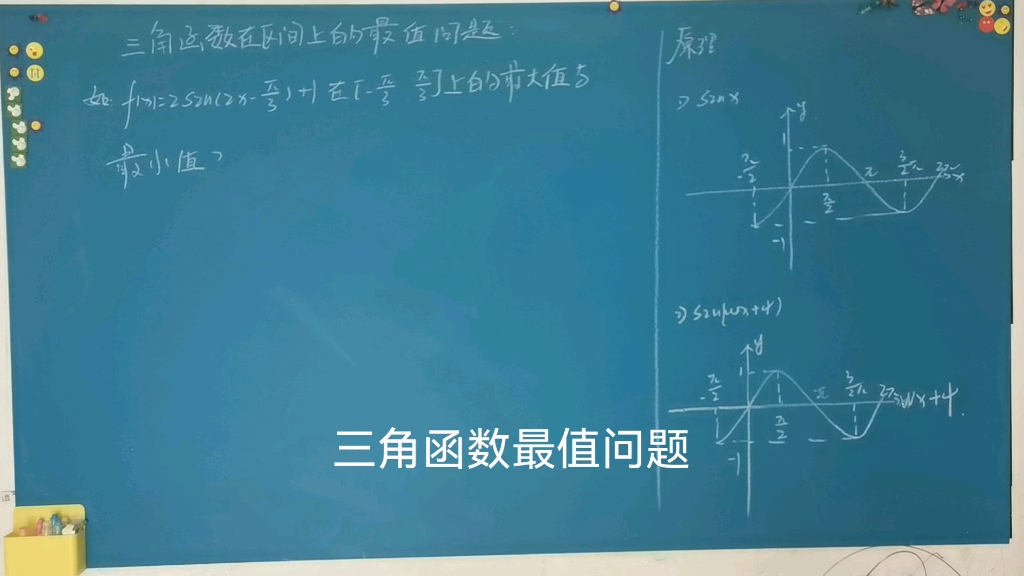 三角函数在区间上的最值问题:
如 f(x)=2sin(2x-π/3)+1 在[-π/3 π/3]上的最大值与
最小值?
原理
1) sinx
y
1
-π/2
π
3/2π
2π
x
π/2
-1
2) sin(wx+φ)
y
1
-π/2
π
3/2π
2π
wx+φ
π/2
-1
三角函数最值问题